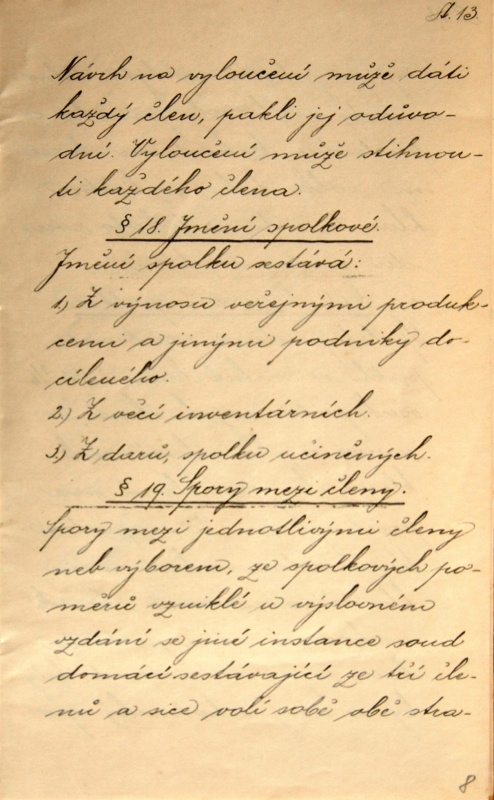 A. 13.
Návrh na vyloučení může dáti
každý člen, pakli jej odůvo-
dní. Vyloučení může stihnou-
ti každého člena.
§ 18. Jmění spolkové.
Jmění spolku sestává:
1.) Z výnosu veřejnými produk-
cemi a jinými podniky do-
cíleného.
2.) Z věcí inventárních.
3.) Z darů, spolku učiněných.
§ 19. Spory mezi členy.
Spory mezi jednotlivými členy
neb výborem, ze spolkových po-
měrů vzniklé u výslovném
vzdání se jiné instance soud
domácí sestávající ze tří čle-
nů a sice volí sobě obě stra-
8